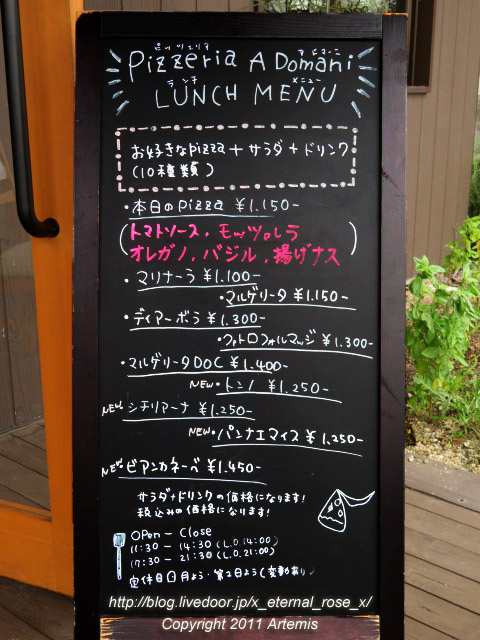 ピッツェリア ア ドマーニ
Pizzeria A Domani
ランチ メニュー
LUNCH MENU
お好きなpizza+サラダ+ドリンク
(10種類)
・本日のpizza ¥1.150-
(トマトソース.モッツァレラ
オレガノ.バジル.揚げナス)
・マリナーラ ¥1.100-
・マルゲリータ ¥1.150-
・ディアーボラ ¥1.300-
・クァトロフォルマッジ ¥1.300-
・マルゲリータDOC ¥1.400-
NEW・トンノ ¥1.250-
NEW・シチリアーナ ¥1.250-
NEW・パンナエマイス ¥1.250-
NEW・ビアンカネーベ ¥1.450-
サラダ+ドリンクの価格になります!
税込みの価格になります!
OPEN - Close
11:30 - 14:30 (L.O.14:00)
17:30 - 21:30 (L.O.21:00)
定休日 月よう・第2日よう(変動あり)
http://blog.livedoor.jp/x_eternal_rose_x/
Copyright 2011 Artemis